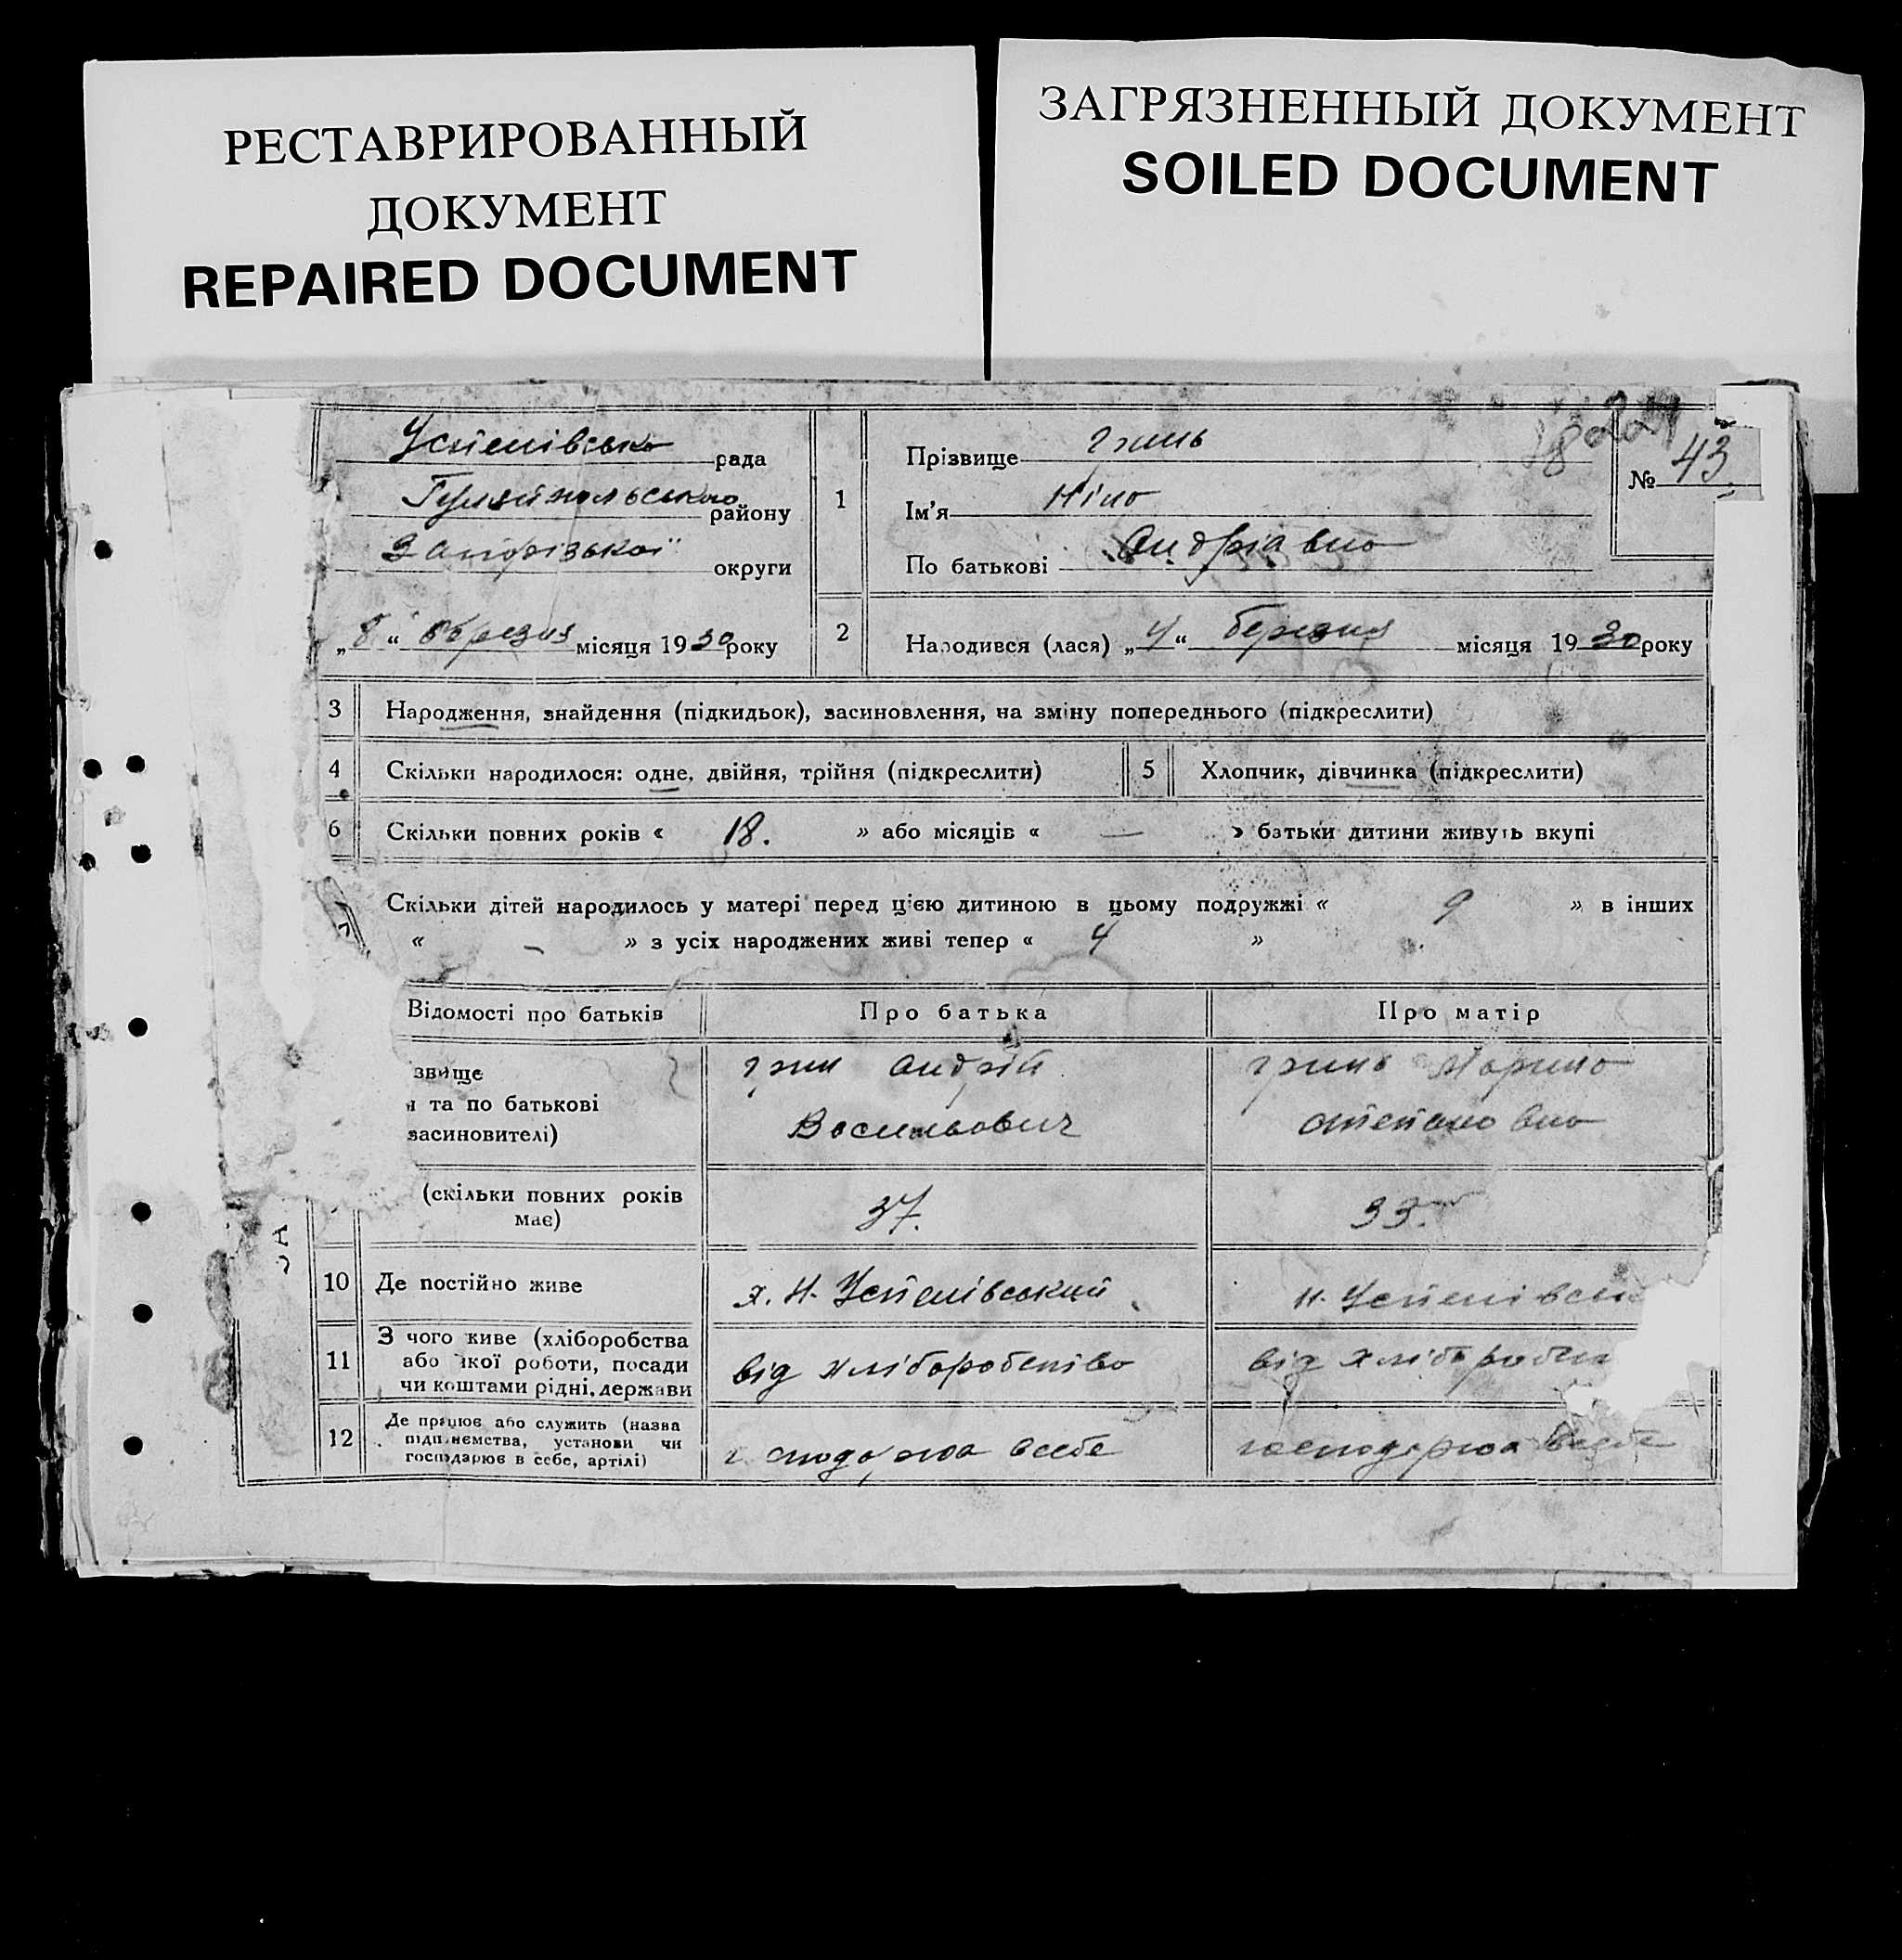 РЕСТАВРИРОВАННЫЙ
ДОКУМЕНТ
REPAIRED DOCUMENT
ЗАГРЯЗНЕННЫЙ ДОКУМЕНТ
SOILED DOCUMENT
Успенівська рада
Гуляйпольського району
Запорізької округи
„8“ березня місяця 1930 року
1
Прізвище Гринь
Ім'я Ніна
По батькові Андріавна
№ 43
2
Народився (лася) „4“ березня місяця 1930 року
3 Народження, знайдення (підкидьок), засиновлення, на зміну попереднього (підкреслити)
4 Скільки народилося: одне, двійня, трійня (підкреслити) 5 Хлопчик, дівчинка (підкреслити)
6 Скільки повних років « 18. » або місяців « — » батьки дитини живуть вкупі
7 Скільки дітей народилось у матері перед цією дитиною в цьому подружжі « 9 » в інших
« – » з усіх народжених живі тепер « 4 »
Відомості про батьків Про батька Про матір
звище
та по батькові
засиновителі)
Грин Андрій
Васильович
Гринь Марина
Степановна
(скільки повних років
має)
37. 33.
10 Де постійно живе х. Н. Успенівський Н. Успенівськи
11 З чого живе (хліборобства
або якої роботи, посади
чи коштами рідні, держави
від хліборобства від хліборобст
12 Де працює або служить (назва
підприємства, установи чи
господарює в себе, артілі)
г сподарюа всебе господарюа всебе